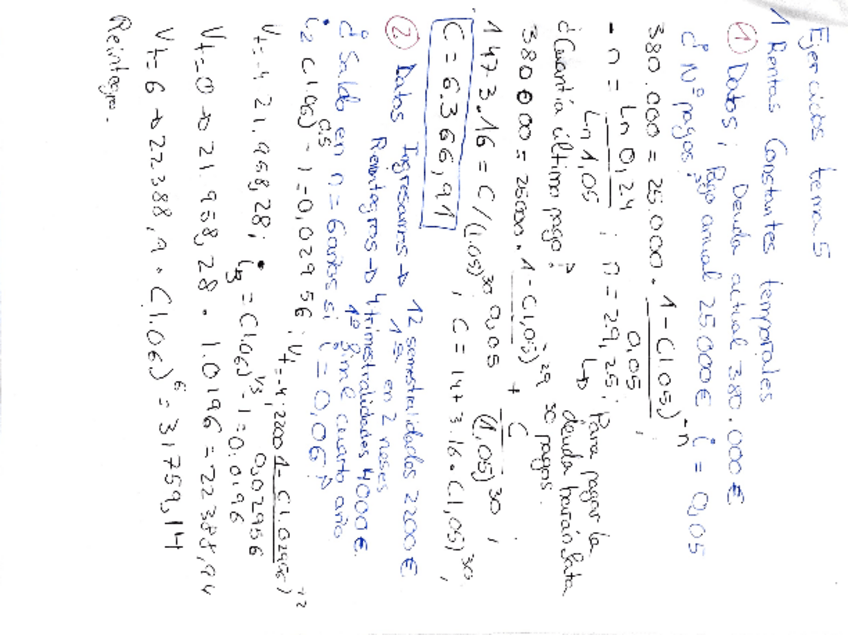 Ejercicios tema 5
1 Rentas Constantes temporales
① Datos; Deuda actual 380.000€
Pago anual 25000€ i = 0,05
¿Nº pagos?
380.000 = 25.000 · 1-(1.05)^-n / 0,05 ;
- n = Ln 0,24 / Ln 1,05 ; n = 29,25; Para pagar la
deuda harán falta
30 pagos.
¿Cuantía último pago?
380000 = 25000 · 1-(1,05)^-29 / 0,05 + C / (1,05)^30 ;
1473.16 = C/(1,05)^30 ; C = 1473.16 · (1,05)^30;
C = 6.366,91
② Datos Ingresamos → 12 semestralidades 2200€
1ª en 2 meses
Reintegros → 4 trimestralidades 4000€
1º final cuarto año
¿Saldo en n = 6 años si i = 0,06?
i2 (1.06)^0,5 - 1 = 0,02956; Vt=-4 · 2200 1-(1.02956)^-12 / 0,02956
Vt=-4 21.958,28; i3 = (1.06)^1/3 - 1 = 0,0196
Vt=0 → 21958,28 · 1.0196 = 22388,94
Vt=6 → 22388,9 · (1.06)^6 = 31759,14
Reintegro.